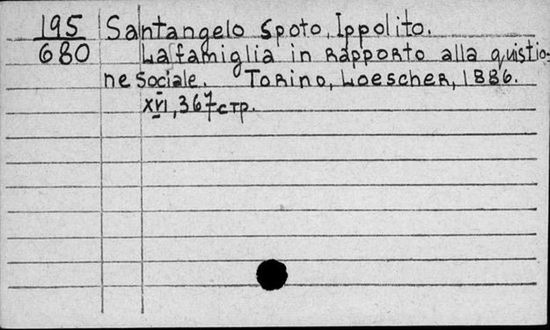 195 Santangelo Spoto, Ippolito.
680 La famiglia in rapporto alla quistio-
ne sociale. Torino, Loescher, 1886.
XVI, 367 стр.